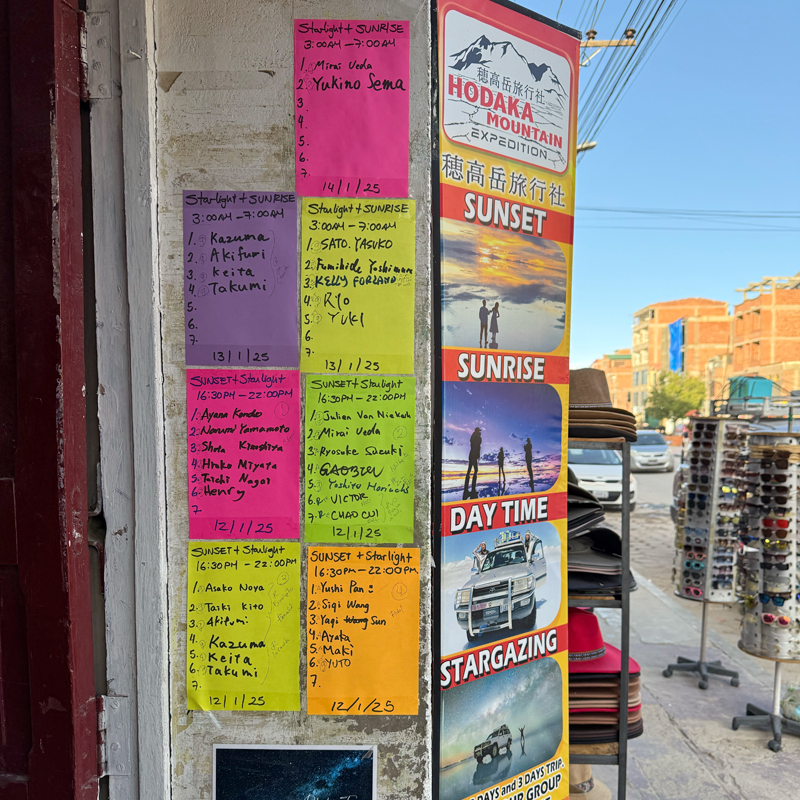 Starlight + SUNRISE
3:00AM – 7:00AM
1. Mirai Ueda
2. Yukino Sema
3.
4.
5.
6.
7.
14/1/25
Starlight + SUNRISE
3:00AM – 7:00AM
1. Kazuma
2. Akifumi
3. Keita
4. Takumi
5.
6.
7.
13/1/25
Starlight + SUNRISE
3:00AM – 7:00AM
1. SATO. YASUKO
2. Fumihide Yoshimura
3. KELLY FORLAND
4. RYO
5. YUKI
6.
7.
13/1/25
SUNSET + Starlight
16:30PM – 22:00PM
1. Ayana Kondo
2. Narumi Yamamoto
3. Shota
4. Hiroko Miyata
5. Taichi Nagai
6. Henry
7.
12/1/25
SUNSET + Starlight
16:30PM – 22:00PM
1. Julian Van Niekerk
2. Mirai Ueda
3. Ryosuke Suzuki
4.
5. Yoshiro
6. VICTOR
7. CHAO CUI
12/1/25
SUNSET + Starlight
16:30PM – 22:00PM
1. Asako Noya
2. Taiki Kito
3. Akifumi
4. Kazuma
5. Keita
6. Takumi
7.
12/1/25
SUNSET + Starlight
16:30PM – 22:00PM
1. Yushi Pan
2. Siqi Wang
3. Yaqi Sun
4. Ayaka
5. Maki
6. YUTO
7.
12/1/25
穂高岳旅行社
HODAKA
MOUNTAIN
EXPEDITION
穂高岳旅行社
SUNSET
SUNRISE
DAY TIME
STARGAZING
DAYS and 3 DAYS TRIP.
GROUP